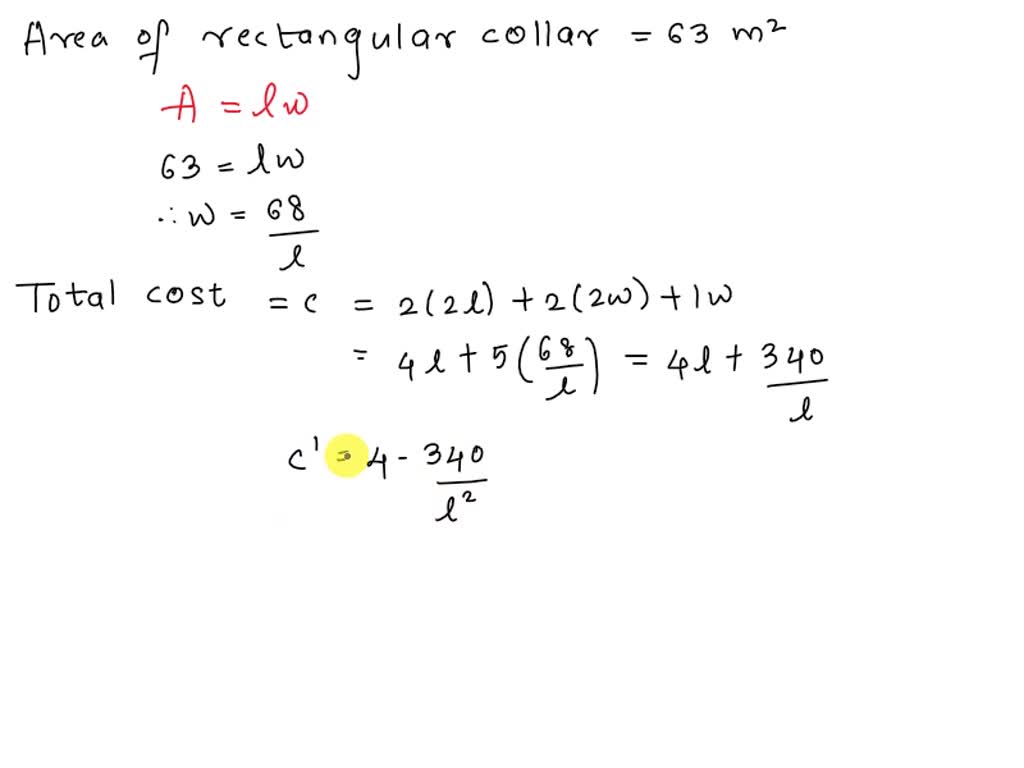 Area of rectangular collar = 63 m²
A = lw
63 = lw
∴ w = 68/l
Total cost = c = 2(2l) + 2(2w) + 1w
= 4l + 5(68/l) = 4l + 340/l
c' = 4 - 340/l²